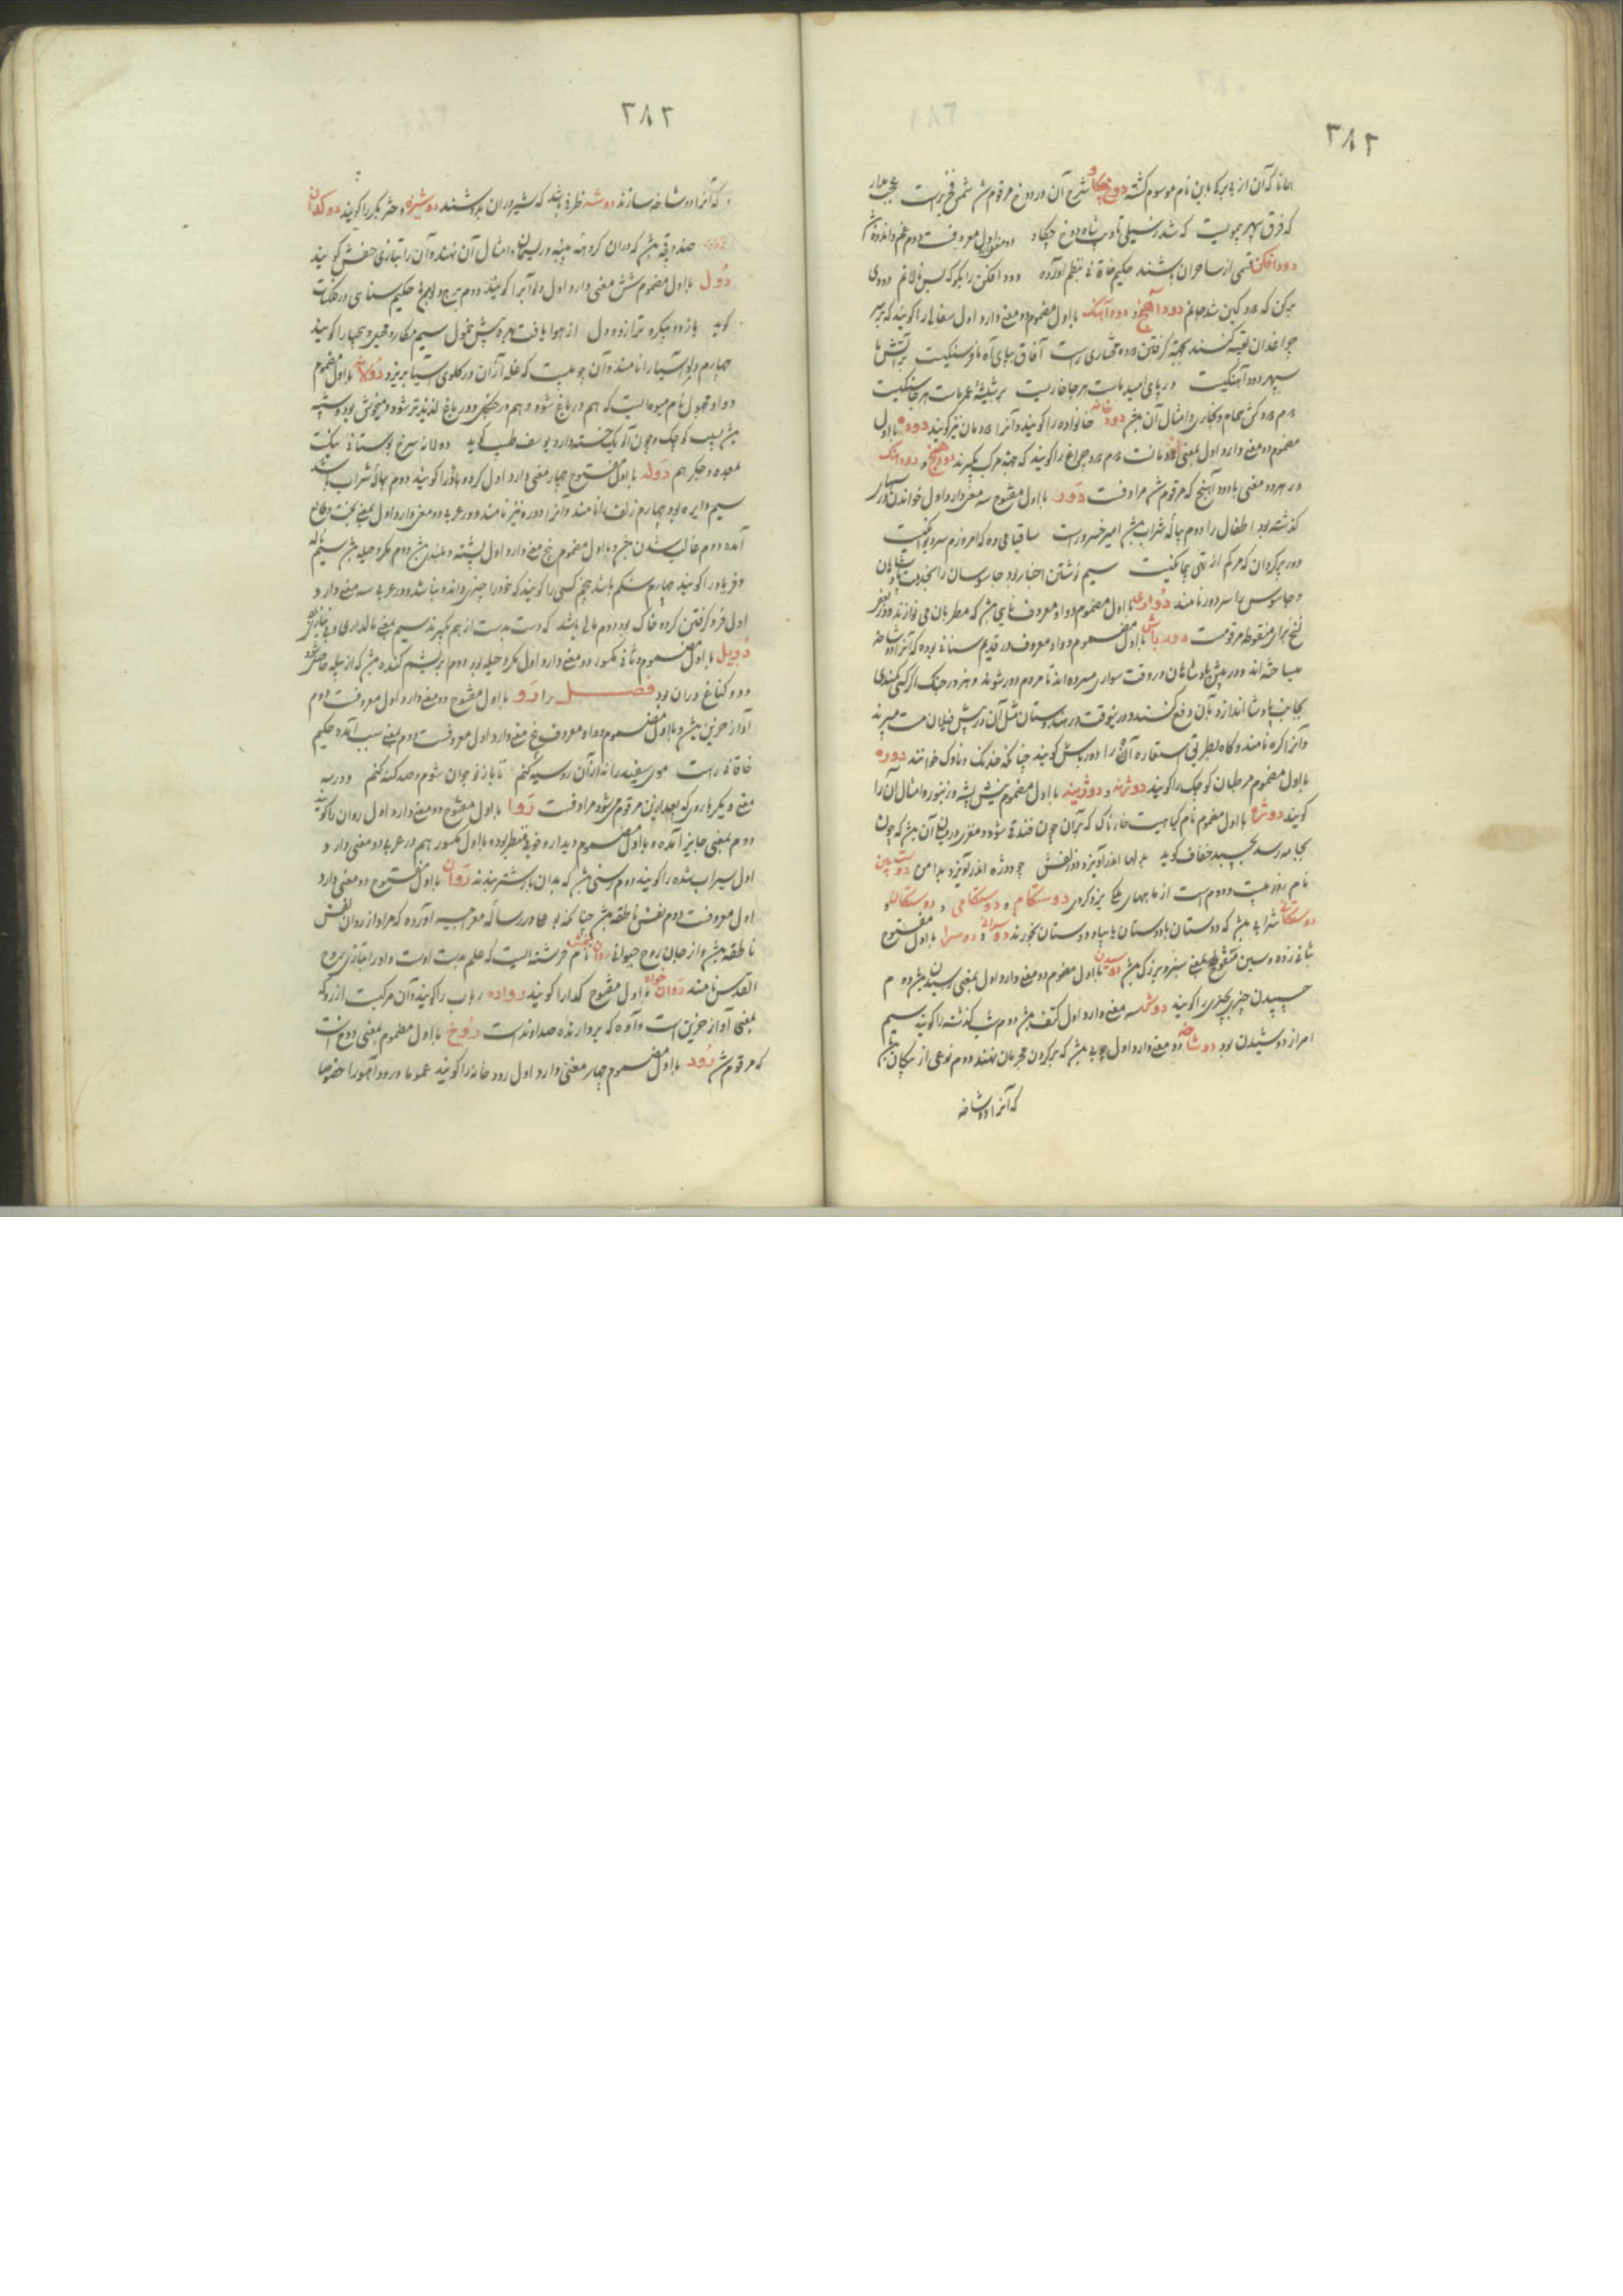 ۳۸۲
همانا که آن از بدیر که باین نام موسوم کشته دوغ شرح آن در دوغ مرقوم شد شمس فخری راست
که فرق سپهر
دود افکن قسمی از ساحران باشند حکیم خاقانی بنظم آورده دود افکن را بکو که بس نالانم دودی
برکن که دود آهنج و دود آهنک با اول مضموم دو معنی دارد اول سفالی را کویند که بر سر
چراغدان تعبیه کنند بجهته کرفتن دوده مختاری راست
سپهر دود آهنکیست در پای امید ماست هر جا خاریست بر شیشه عمر ماست هر جا سنکیست
دوم دودکش حمام و بخاری و امثال آن دود خانه خانواده را کویند و آنرا دودمان نیز کویند دوده با اول
مضموم دو معنی دارد اول بمعنی دودمانست دوم دود چراغ را کویند که جهته مرکب بکیرند دودهنج و دودهنک
در هر دو معنی با دود آهنج که مرقوم شد مرادفست دور با اول مفتوح سه معنی دارد اول خواندن درس
کذشته بود اطفال را دوم پیاله شراب امیر خسرو راست ساقیا می ده که امروزم سر دیوانکیست
دور پر کردان که مرکم از تهی پیمانکیست سیم نوشتن اخبار بود جاسوسان را بخدمت پادشاهان
و جاسوس را سر دور نامند با اول مضموم و واو معروف نایی که مطربان می نوازند و در بعضی
نسخ برای منقوطه مرقومست دورباش با اول مضموم و واو معروف در قدیم سنانی بوده که آنرا دو شاخه
میساخته اند و در پیش پادشاهان در وقت سواری میبرده اند تا مردم دور شوند و هم در جنک اکر کسی کمندی
بجانب پادشاه اندازد بآن دفع کنند و درینوقت در هندوستان مثل آن در پیش فیلان مست میبرند
و کاه بطریق استعاره آه را دورباش کویند چنانکه خدنک و ناوک خوانند دوره
با اول مضموم مرطبان کوچک را کویند دوژنه و دوژینه با اول مضموم نیش پشه و زنبور و امثال آن را
کویند دوژه با اول مضموم نام کیاهیست خارناک که برآن چون فندقی شود و مغزی در میان آن که چون
بجامه رسد بچسبد خفاف کوید
نام روز بیست و دوم است از ماههای ملکی یزدکردی دوستکام و دوستکامی و دوستکان و
دوستکانی شرابی که دوستان با دوستان یا بیاد دوستان بخورند و دوسرا با اول مفتوح
بثانی زده و سین مفتوح دوسیدن با اول مضموم دو معنی دارد اول بمعنی دوم
چسپیدن چیزی بچیزی را کویند دوش سه معنی دارد اول کتف دوم شب کذشته را کویند سیم
امر از دوشیدن بود دوشاخه دو معنی دارد اول چوبی که بر کردن مجرمان نهند دوم نوعی از پیکان
که آنرا دو شاخه
۳۸۳
که آنرا دو شاخه سازند دوشه ظرفی باشد که شیر در آن بدوشند دوشیزه دختر بکر را کویند دوکدان
صندوقچه که در آن کروهه پنبه و ریسمان و امثال آن نهند و آن را بتازی حفش کویند
دول با اول مضموم شش معنی دارد اول دلو آب را کویند دوم برج دلو حکیم سنایی در صفت
کوید سیم مکار و را کویند
چهارم دلو آسیا را نامند و آن چوبیست که غله از آن در کلوی آسیا بریزد دولانه با اول مضموم
و واو مجهول نام میوه ایست که هم در باغ شود و هم در جنکل و در باغ لذیذتر شود و میخوش بود و شبیه
به سیب کوچک و چون آلو یک خسته دارد یوسفی طبیب کوید دولانه سرخ بوستانی نیکست
بمعده و جکر هم دوله با اول مفتوح چهار معنی دارد اول کردباد را کویند دوم پیاله شراب باشد
سیم دایره بود چهارم زلف را نامند و آنرا دوره نیز نامند و در عربی دو معنی دارد اول بمعنی بخت
آمده دوم غالب شدن و با اول مضموم پنج معنی دارد اول پشته و بلندی دوم مکر و حیله سیم ناله
و فریاد را کویند چهارم شکم باشد پنجم کسی را کویند که خود را چیزی داند و نباشد و در عربی سه معنی دارد
اول فرو کرفتن کرده خاک بود دوم مالی باشد که دست بدست از هم بکیرند سیم بمعنی مالداری
دویل با اول مضموم و ثانی مکسور دو معنی دارد اول مکر و حیله بود دوم ابریشم کنده که از پیله حاصل شود
و دو کناغ در آن بود فصل را رو با اول مفتوح دو معنی دارد اول معروفست دوم
آواز حزین و با اول مضموم و واو معروف پنج معنی دارد اول معروفست دوم بمعنی سبب آمده حکیم
خاقانی راست موی سفید را نه از آن رو سیه کنم تا باز نوجوان شوم و صد کنه کنم و در سه
معنی دیکر با روی که بعد ازین مرقوم میشود مرادفست روا با اول مفتوح دو معنی دارد اول روان را کویند
دوم بمعنی جایز آمده و با اول مضموم دیدار و خوبی منظر بود و با اول مکسور هم در عربی دو معنی دارد
اول سیراب شده را کویند دوم رسنی که بدان بار شتر بندند روان با اول مفتوح دو معنی دارد
اول معروفست دوم نفس ناطقه چنانکه بوعلی در رساله معراجیه آورده که مراد از روان نفس
ناطقه و از جان روح حیوانی روان بخش نام فرشته ایست که علم بدست اوست و او را بتازی روح
القدس نامند روان خواه با اول مفتوح کدا را کویند رواده رباب را کویند و آن مرکبست از رو که
بمعنی آواز حزین است و آوه که بردارنده صدا و نداست روخ با اول مضموم بمعنی
که مرقوم شد رود با اول مضموم چهار معنی دارد اول رودخانه را کویند عموما و رود آمو را خصوصا